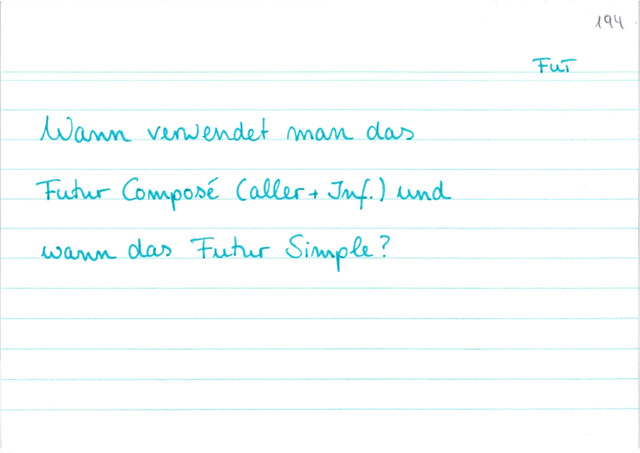 194
Fut
Wann verwendet man das
Futur Composé (aller + Inf.) und
wann das Futur Simple?